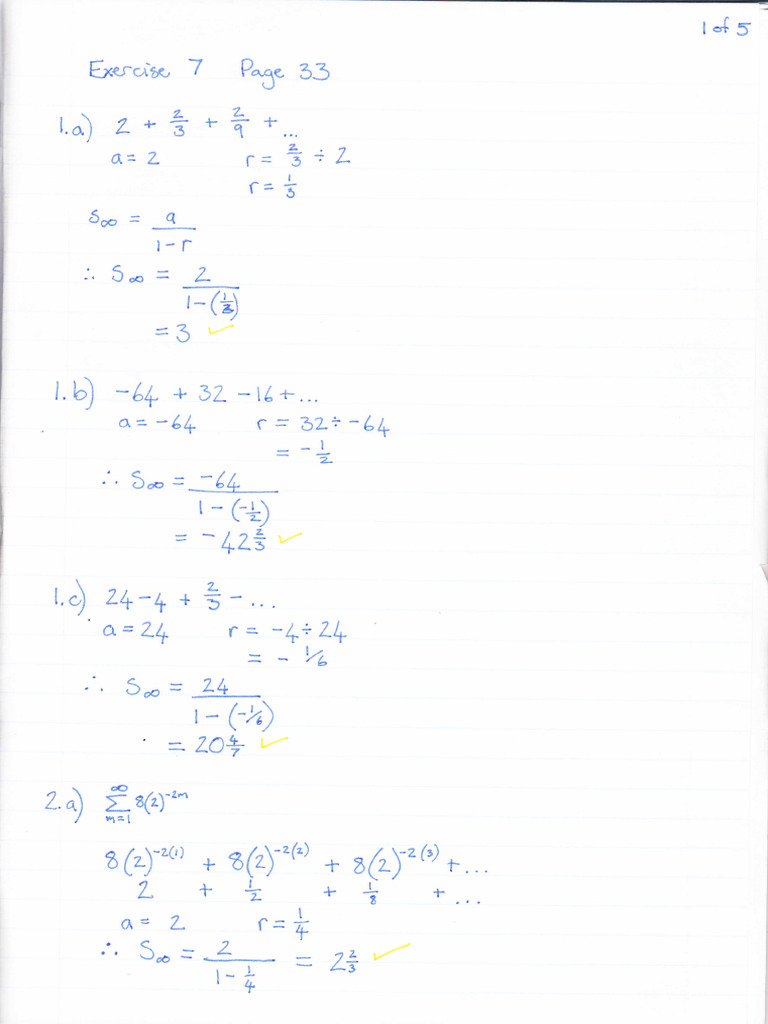 1 of 5
Exercise 7 Page 33
1.a) 2 + 2/3 + 2/9 + ...
a = 2 r = 2/3 ÷ 2
r = 1/3
S∞ = a/(1-r)
∴ S∞ = 2/(1-(1/3))
= 3 ✓
1.b) -64 + 32 - 16 + ...
a = -64 r = 32 ÷ -64
= -1/2
∴ S∞ = -64/(1-(-1/2))
= -42 2/3 ✓
1.c) 24 - 4 + 2/3 - ...
a = 24 r = -4 ÷ 24
= - 1/6
∴ S∞ = 24/(1-(-1/6))
= 20 4/7 ✓
2.a) ∞∑m=1 8(2)^-2m
8(2)^-2(1) + 8(2)^-2(2) + 8(2)^-2(3) + ...
2 + 1/2 + 1/8 + ...
a = 2 r = 1/4
∴ S∞ = 2/(1-1/4) = 2 2/3 ✓